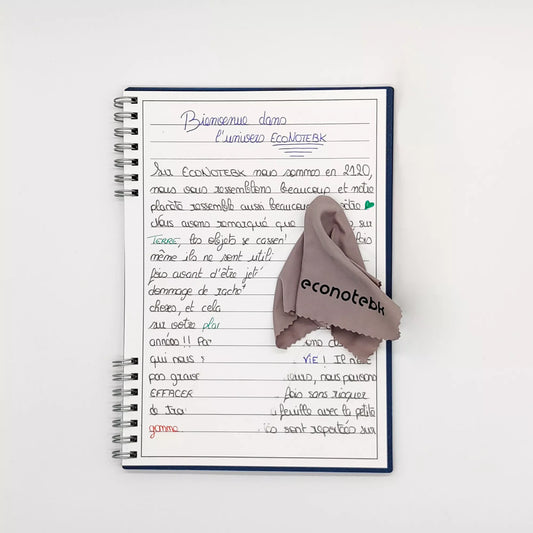 Bienvenue dans
l'univers ECONOTEBK
Sur ECONOTEBK nous sommes en 2120,
nous vous ressemblons beaucoup et notre
planète ressemble aussi beaucoup
Nous avons remarqué que sur
TERRE, les objets se cassent
même ils ne sont utili
fois avant d'être jet
dommage de rach
choses, et cela
sur votre pla
années !! Pa
qui nous VIE ! Il n'est
pas grave nous pouvons
EFFACER fois sans risquer
de feuille avec la petite
gomme sont reportées sur
econotebk